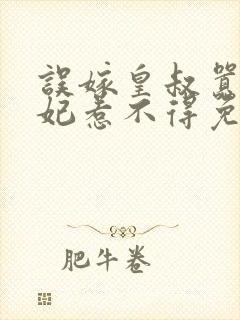 誤嫁皇叔囂
妃惹不得免
肥牛卷